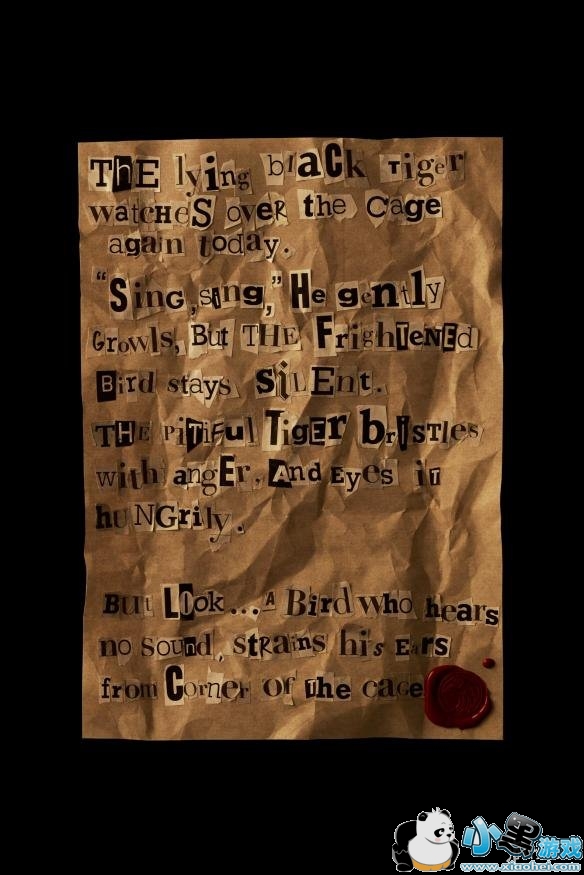 THE lying black Tiger
watcHes over the Cage
again today.
"Sing, sing," He gently
Growls, But THE FrighTeNED
Bird stays SiLEnt.
THE PiTiFul TigEr brisTles
with angEr, And Eyes iT
huNGrily.
But LOok... A Bird who hears
no sound, stRains his EaRS
from Corner of The cage
小黑游戏
www.xiaohei.com